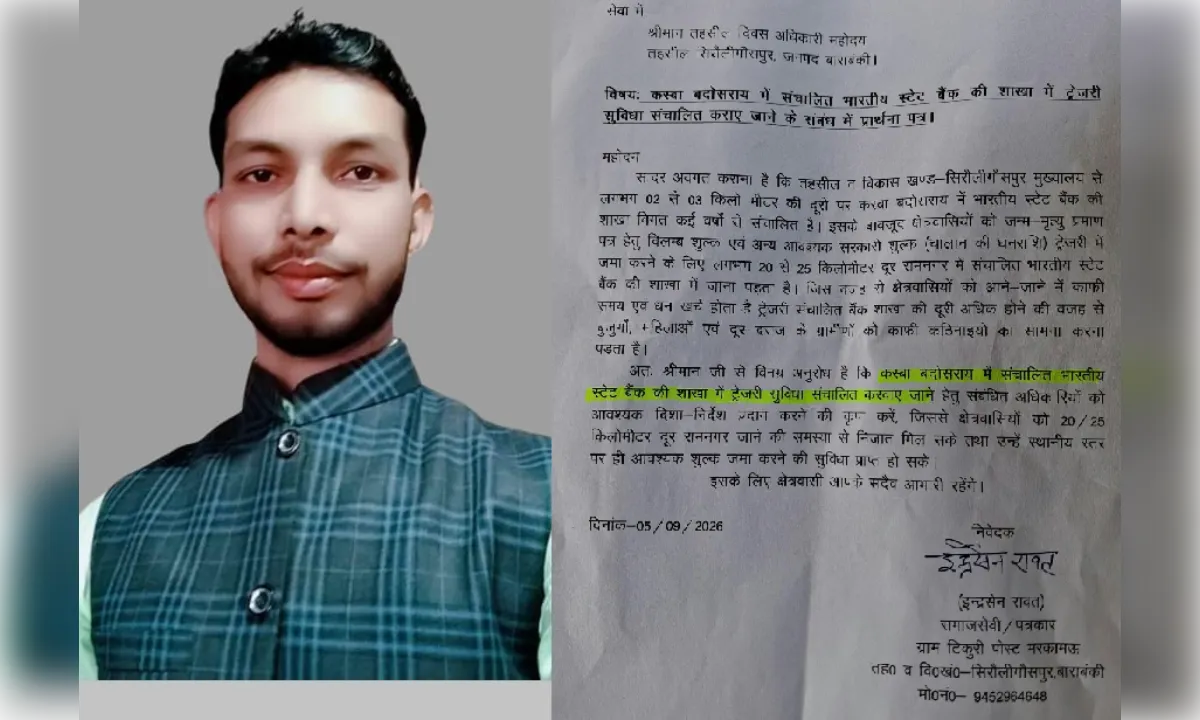 सेवा में
श्रीमान तहसील दिवस अधिकारी महोदय
तहसील सिरौलीगौसपुर, जनपद बाराबंकी।
विषय: कस्बा बदोसराय में संचालित भारतीय स्टेट बैंक की शाखा में ट्रेजरी
सुविधा संचालित कराए जाने के संबंध में प्रार्थना पत्र।
महोदय
सादर अवगत कराना है कि तहसील व विकास खण्ड–सिरौलीगौसपुर मुख्यालय से
लगभग 02 से 03 किलो मीटर की दूरी पर कस्बा बदोसराय में भारतीय स्टेट बैंक की
शाखा विगत कई वर्षों से संचालित है। इसके बावजूद क्षेत्रवासियों को जन्म–मृत्यु प्रमाण
पत्र हेतु विलम्ब शुल्क एवं अन्य आवश्यक सरकारी शुल्क (चालान की धनराशि) ट्रेजरी में
जमा करने के लिए लगभग 20 से 25 किलोमीटर दूर रामनगर में संचालित भारतीय स्टेट
बैंक की शाखा में जाना पड़ता है। जिस वजह से क्षेत्रवासियों को आने–जाने में काफी
समय एवं धन खर्च होता है ट्रेजरी संचालित बैंक शाखा की दूरी अधिक होने की वजह से
बुजुर्गों, महिलाओं एवं दूर दराज के ग्रामीणों को काफी कठिनाइयों का सामना करना
पड़ता है।
अतः श्रीमान जी से विनम्र अनुरोध है कि कस्बा बदोसराय में संचालित भारतीय
स्टेट बैंक की शाखा में ट्रेजरी सुविधा संचालित करवाए जाने हेतु संबंधित अधिकारियों को
आवश्यक दिशा–निर्देश प्रदान करने की कृपा करें, जिससे क्षेत्रवासियों को 20/25
किलोमीटर दूर रामनगर जाने की समस्या से निजात मिल सके तथा उन्हें स्थानीय स्तर
पर ही आवश्यक शुल्क जमा करने की सुविधा प्राप्त हो सके
इसके लिए क्षेत्रवासी आपके सदैव आभारी रहेंगे।
दिनांक–05/09/2026
निवेदक
इन्द्रसेन रावत
(इन्द्रसेन रावत)
समाजसेवी/पत्रकार
ग्राम टिकुरी पोस्ट मरकामऊ
तह0 व वि0खं0–सिरौलीगौसपुर,बाराबंकी
मो0नं0– 9452964648